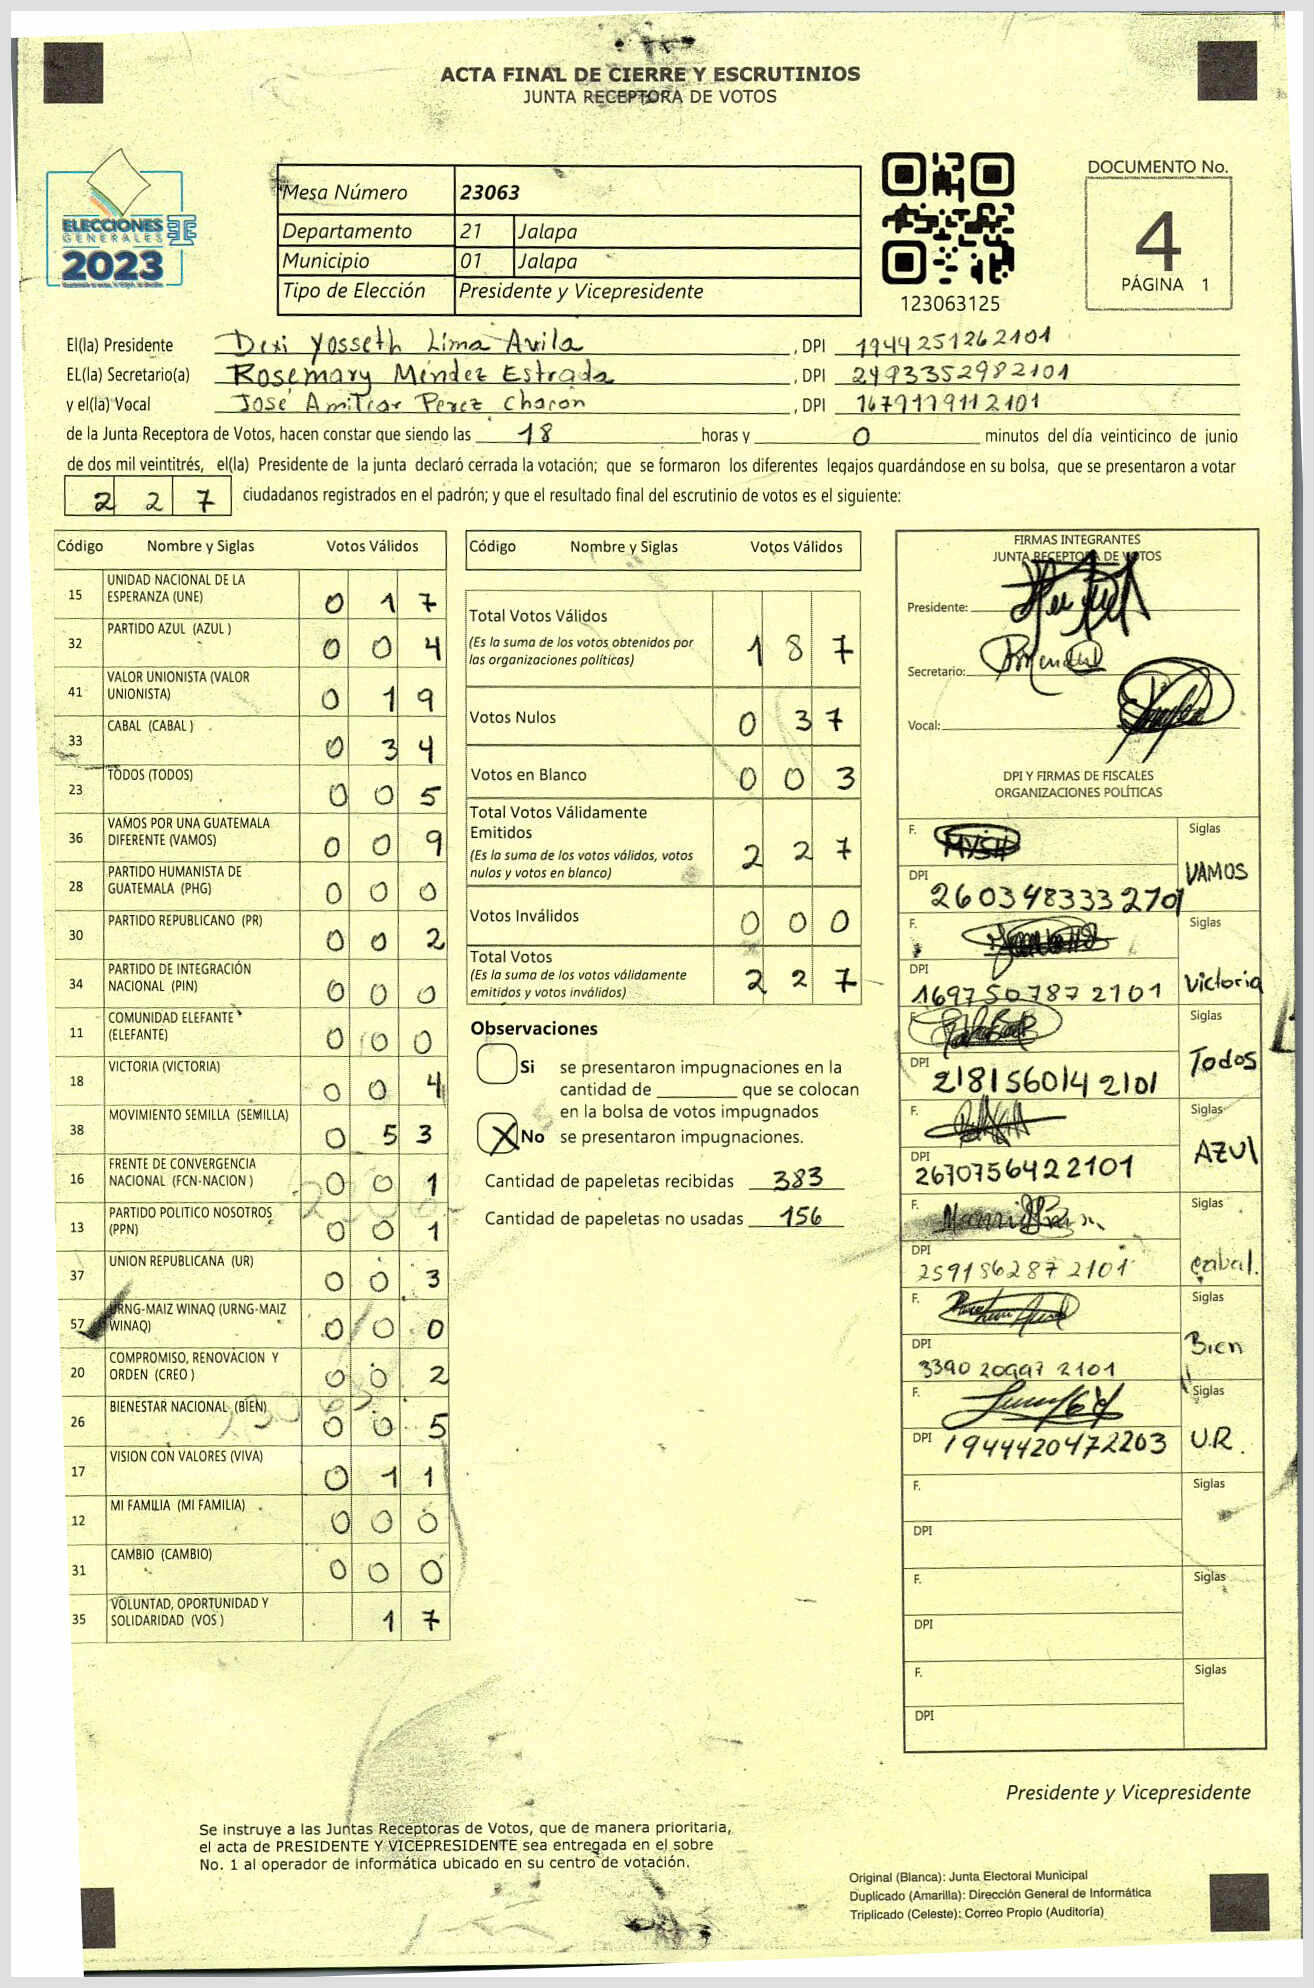 ACTA FINAL DE CIERRE Y ESCRUTINIOS
JUNTA RECEPTORA DE VOTOS
ELECCIONES
GENERALES
2023
Mesa Número 23063
Departamento 21 Jalapa
Municipio 01 Jalapa
Tipo de Elección Presidente y Vicepresidente
123063125
DOCUMENTO No.
4
PÁGINA 1
El(la) Presidente Dexi Yosseth Lima Avila , DPI 1944251262101
EL(la) Secretario(a) Rosemary Méndez Estrada , DPI 2493352982101
y el(la) Vocal José Amilcar Perez Chacon , DPI 1679179112101
de la Junta Receptora de Votos, hacen constar que siendo las 18 horas y 0 minutos del día veinticinco de junio
de dos mil veintitrés, el(la) Presidente de la junta declaró cerrada la votación; que se formaron los diferentes legajos guardándose en su bolsa, que se presentaron a votar
2 2 7 ciudadanos registrados en el padrón; y que el resultado final del escrutinio de votos es el siguiente:
Código Nombre y Siglas Votos Válidos
15 UNIDAD NACIONAL DE LA ESPERANZA (UNE) 0 1 7
32 PARTIDO AZUL (AZUL ) 0 0 4
41 VALOR UNIONISTA (VALOR UNIONISTA) 0 1 9
33 CABAL (CABAL ) 0 3 4
23 TODOS (TODOS) 0 0 5
36 VAMOS POR UNA GUATEMALA DIFERENTE (VAMOS) 0 0 9
28 PARTIDO HUMANISTA DE GUATEMALA (PHG) 0 0 0
30 PARTIDO REPUBLICANO (PR) 0 0 2
34 PARTIDO DE INTEGRACIÓN NACIONAL (PIN) 0 0 0
11 COMUNIDAD ELEFANTE (ELEFANTE) 0 0 0
18 VICTORIA (VICTORIA) 0 0 4
38 MOVIMIENTO SEMILLA (SEMILLA) 0 5 3
16 FRENTE DE CONVERGENCIA NACIONAL (FCN-NACION ) 0 0 1
13 PARTIDO POLITICO NOSOTROS (PPN) 0 0 1
37 UNION REPUBLICANA (UR) 0 0 3
57 URNG-MAIZ WINAQ (URNG-MAIZ WINAQ) 0 0 0
20 COMPROMISO, RENOVACION Y ORDEN (CREO ) 0 0 2
26 BIENESTAR NACIONAL (BIEN) 0 0 5
17 VISION CON VALORES (VIVA) 0 1 1
12 MI FAMILIA (MI FAMILIA) 0 0 0
31 CAMBIO (CAMBIO) 0 0 0
35 VOLUNTAD, OPORTUNIDAD Y SOLIDARIDAD (VOS ) 1 7
Código Nombre y Siglas Votos Válidos
Total Votos Válidos 1 8 7
(Es la suma de los votos obtenidos por
las organizaciones políticas)
Votos Nulos 0 3 7
Votos en Blanco 0 0 3
Total Votos Válidamente
Emitidos 2 2 7
(Es la suma de los votos válidos, votos
nulos y votos en blanco)
Votos Inválidos 0 0 0
Total Votos 2 2 7
(Es la suma de los votos válidamente
emitidos y votos inválidos)
Observaciones
Si se presentaron impugnaciones en la
cantidad de ________ que se colocan
en la bolsa de votos impugnados
X No se presentaron impugnaciones.
Cantidad de papeletas recibidas 383
Cantidad de papeletas no usadas 156
FIRMAS INTEGRANTES
JUNTA RECEPTORA DE VOTOS
Presidente:
Secretario:
Vocal:
DPI Y FIRMAS DE FISCALES
ORGANIZACIONES POLÍTICAS
F. Siglas
DPI 2603483332701 VAMOS
F. Siglas
DPI 1697507872101 Victoria
F. Siglas
DPI 2181560142101 Todos
F. Siglas
DPI 2670756422101 AZUL
F. Siglas
DPI 2591862872101 Cabal.
F. Siglas
DPI 3390209972101 Bien
F. Siglas
DPI 1944420472203 U.R.
F. Siglas
DPI
F. Siglas
DPI
F. Siglas
DPI
Presidente y Vicepresidente
Se instruye a las Juntas Receptoras de Votos, que de manera prioritaria,
el acta de PRESIDENTE Y VICEPRESIDENTE sea entregada en el sobre
No. 1 al operador de informática ubicado en su centro de votación.
Original (Blanca): Junta Electoral Municipal
Duplicado (Amarilla): Dirección General de Informática
Triplicado (Celeste): Correo Propio (Auditoría)